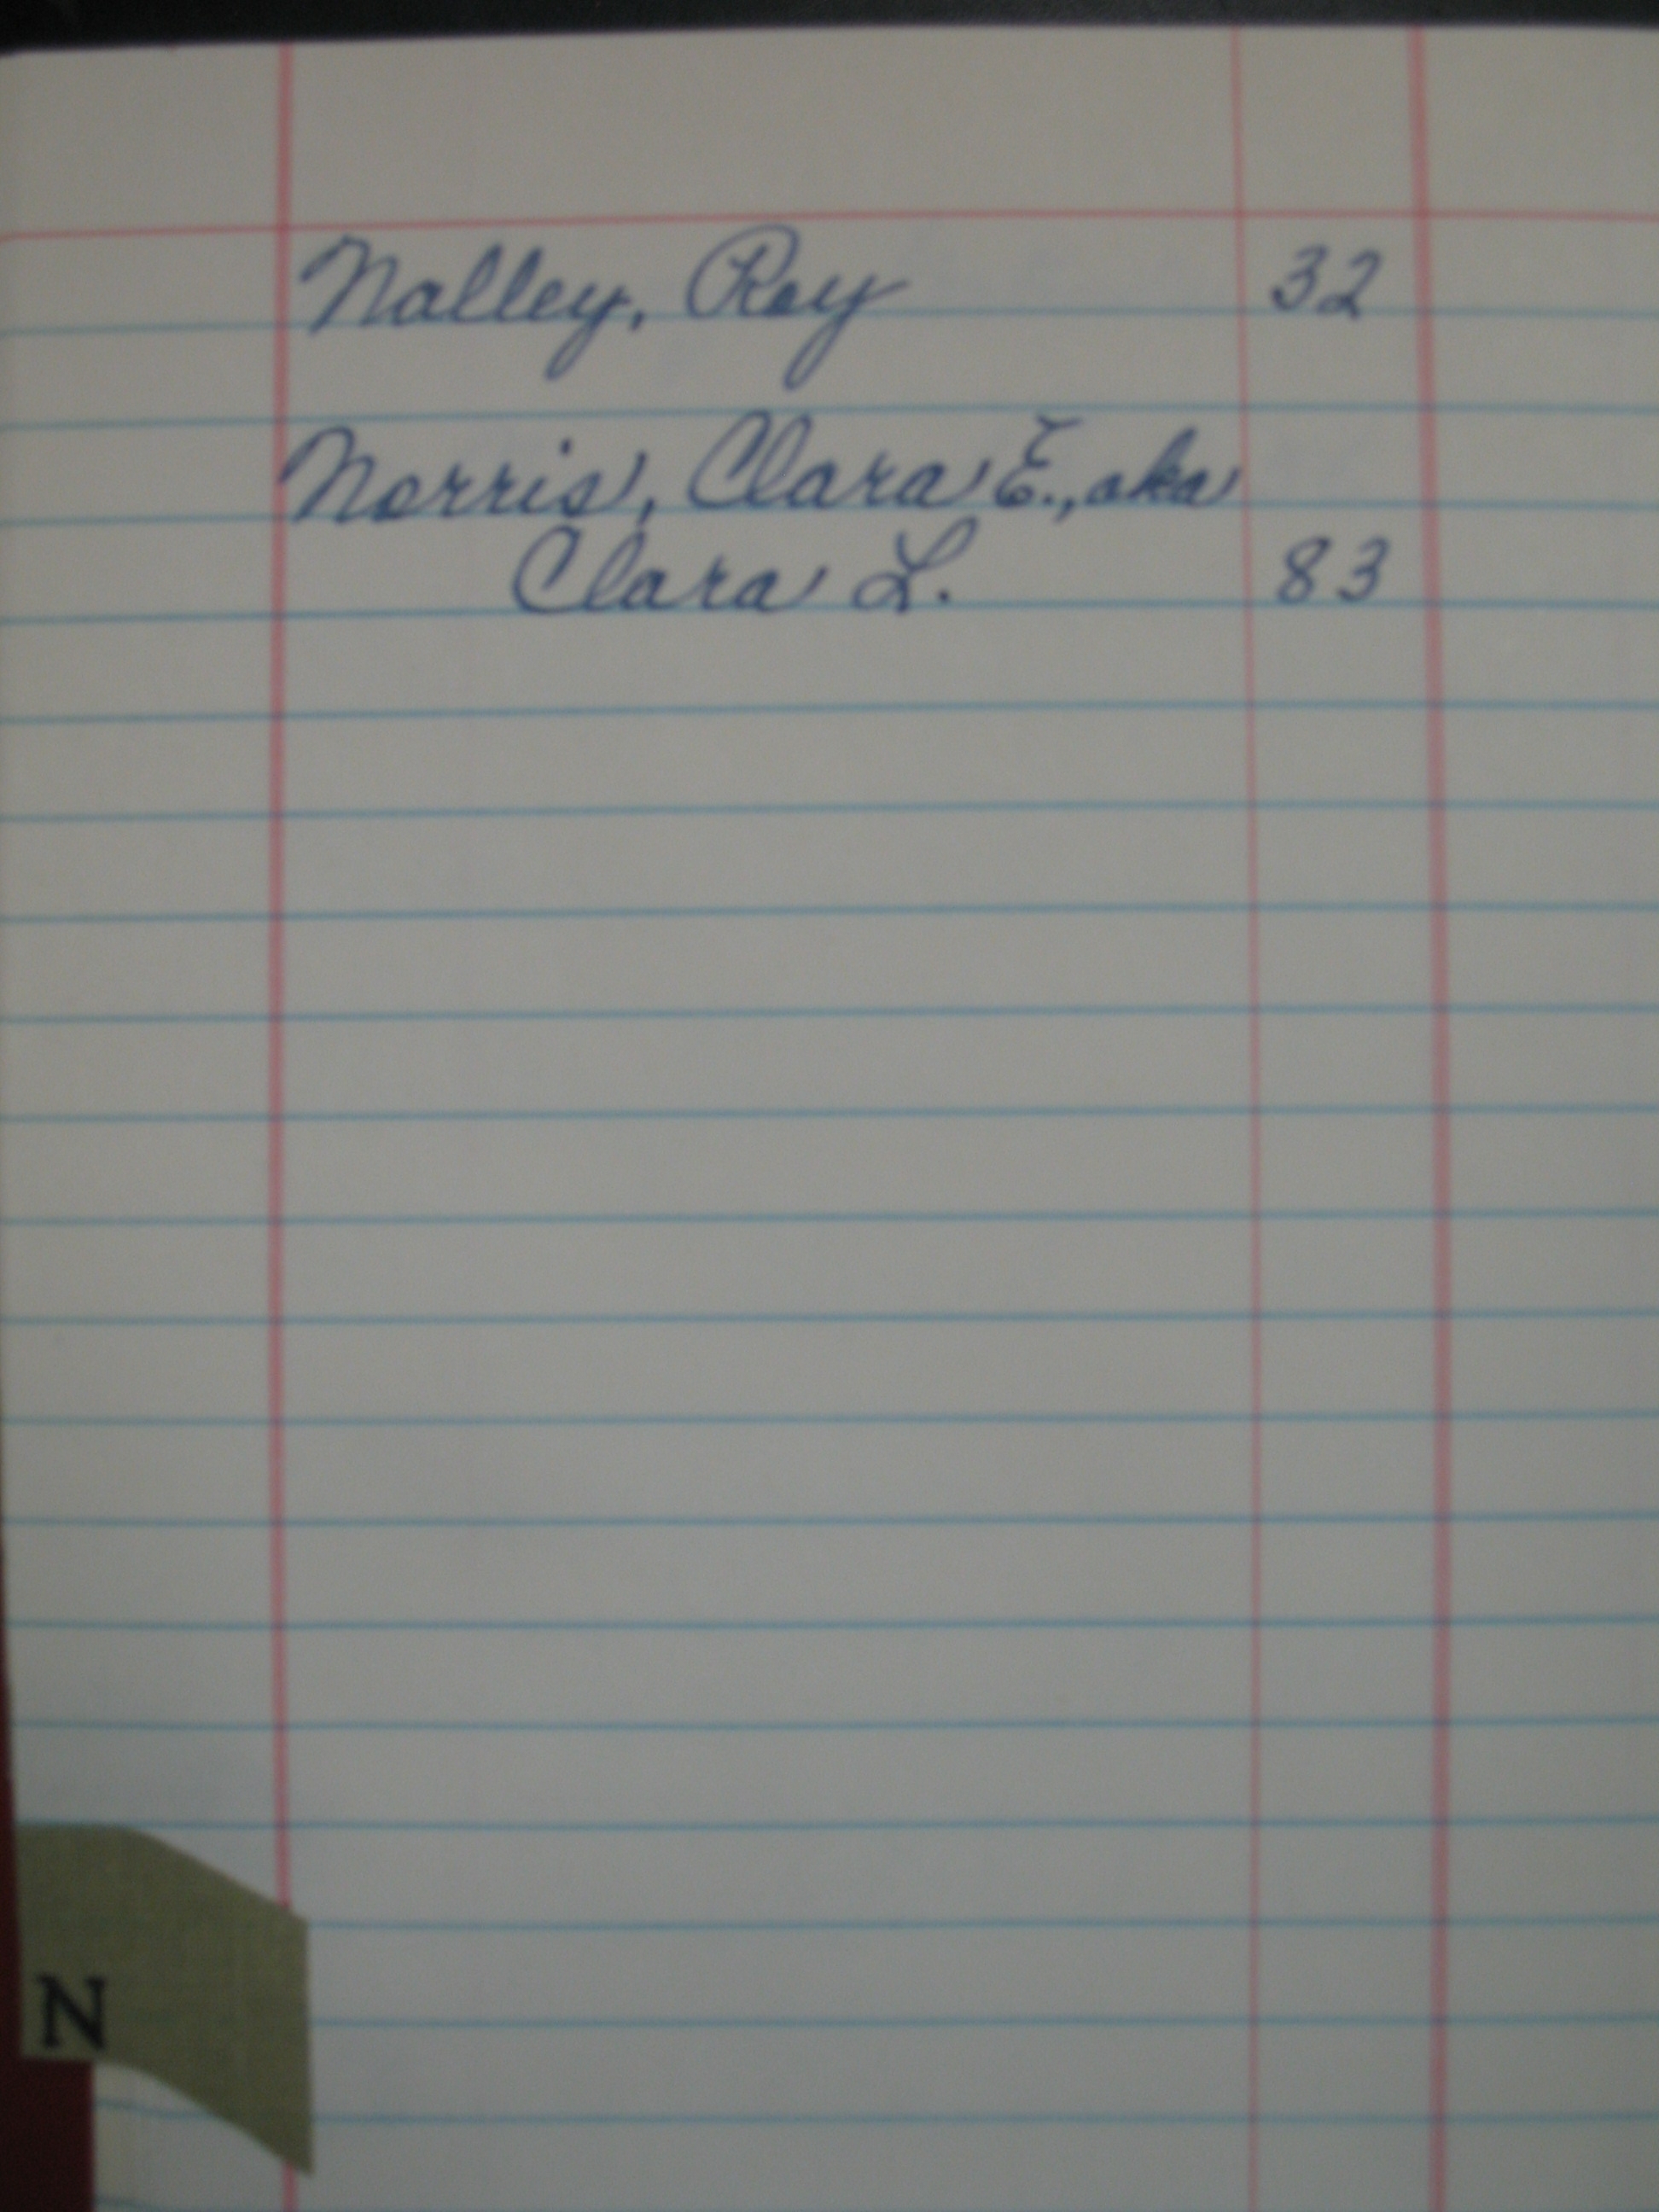 Nalley, Roy 32
Norris, Clara E., aka
Clara L. 83
N